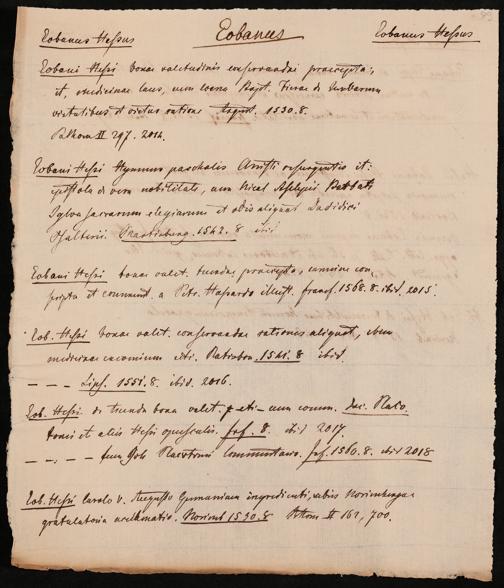 Eobanus Hessus Eobanus Eobanus Hessus
Eobani Hessi bonae valetudinis conservandae praecepta,
it. medicinae laus, cum Bapt. Fierae de herbarum
virtutibus et victus ratione 1530. 8.
II 297. 2014.
Eobani Hessi Hymnus paschalis Christi resurgentis it:
epistola de vera nobilitate, cum Nicol. Asclepii Barbati
Sylva sacrarum elegiarum et odis aliquot Davidici
Psalterii. 1542. 8 ibid
Eobani Hessi bonae valet. tuendae praecepta, carmine con
scripta et comment. a Petr. Hassardo illustr. Francf. 1568. 8. ibid. 2015.
Eob. Hessi bonae valet. conservandae rationes aliquot, ejusd.
medicinae encomium etc. 1541. 8 ibid.
– – – Lips. 1551. 8. ibid. 2016.
Eob. Hessi de tuenda bona valet. etc cum comm. Jac. Placo
tomi et aliis Hessi opusculis. Frf. 8. ibid 2017
– – . – cum Joh. Placotomi Commentario. Frf. 1560. 8. ibid 2018
Eob. Hessi Carolo V. Augusto Germaniam ingredienti, urbis Norimbergae
gratulatoria acclamatio. Norimb 1530. 8 II 162, 700.